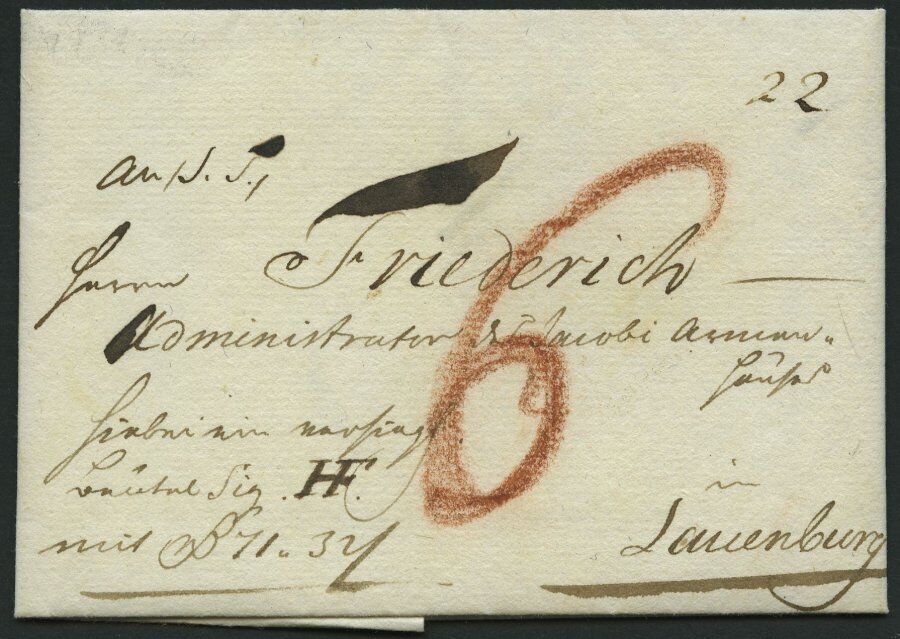 22
An S. T.,
Herrn Friederich
Administrator des Jacobi Armen=
Hauses
hiebei ein versiegt.
Beutel Sig. HF.
mit 71 " 32
in
Lauenburg
6